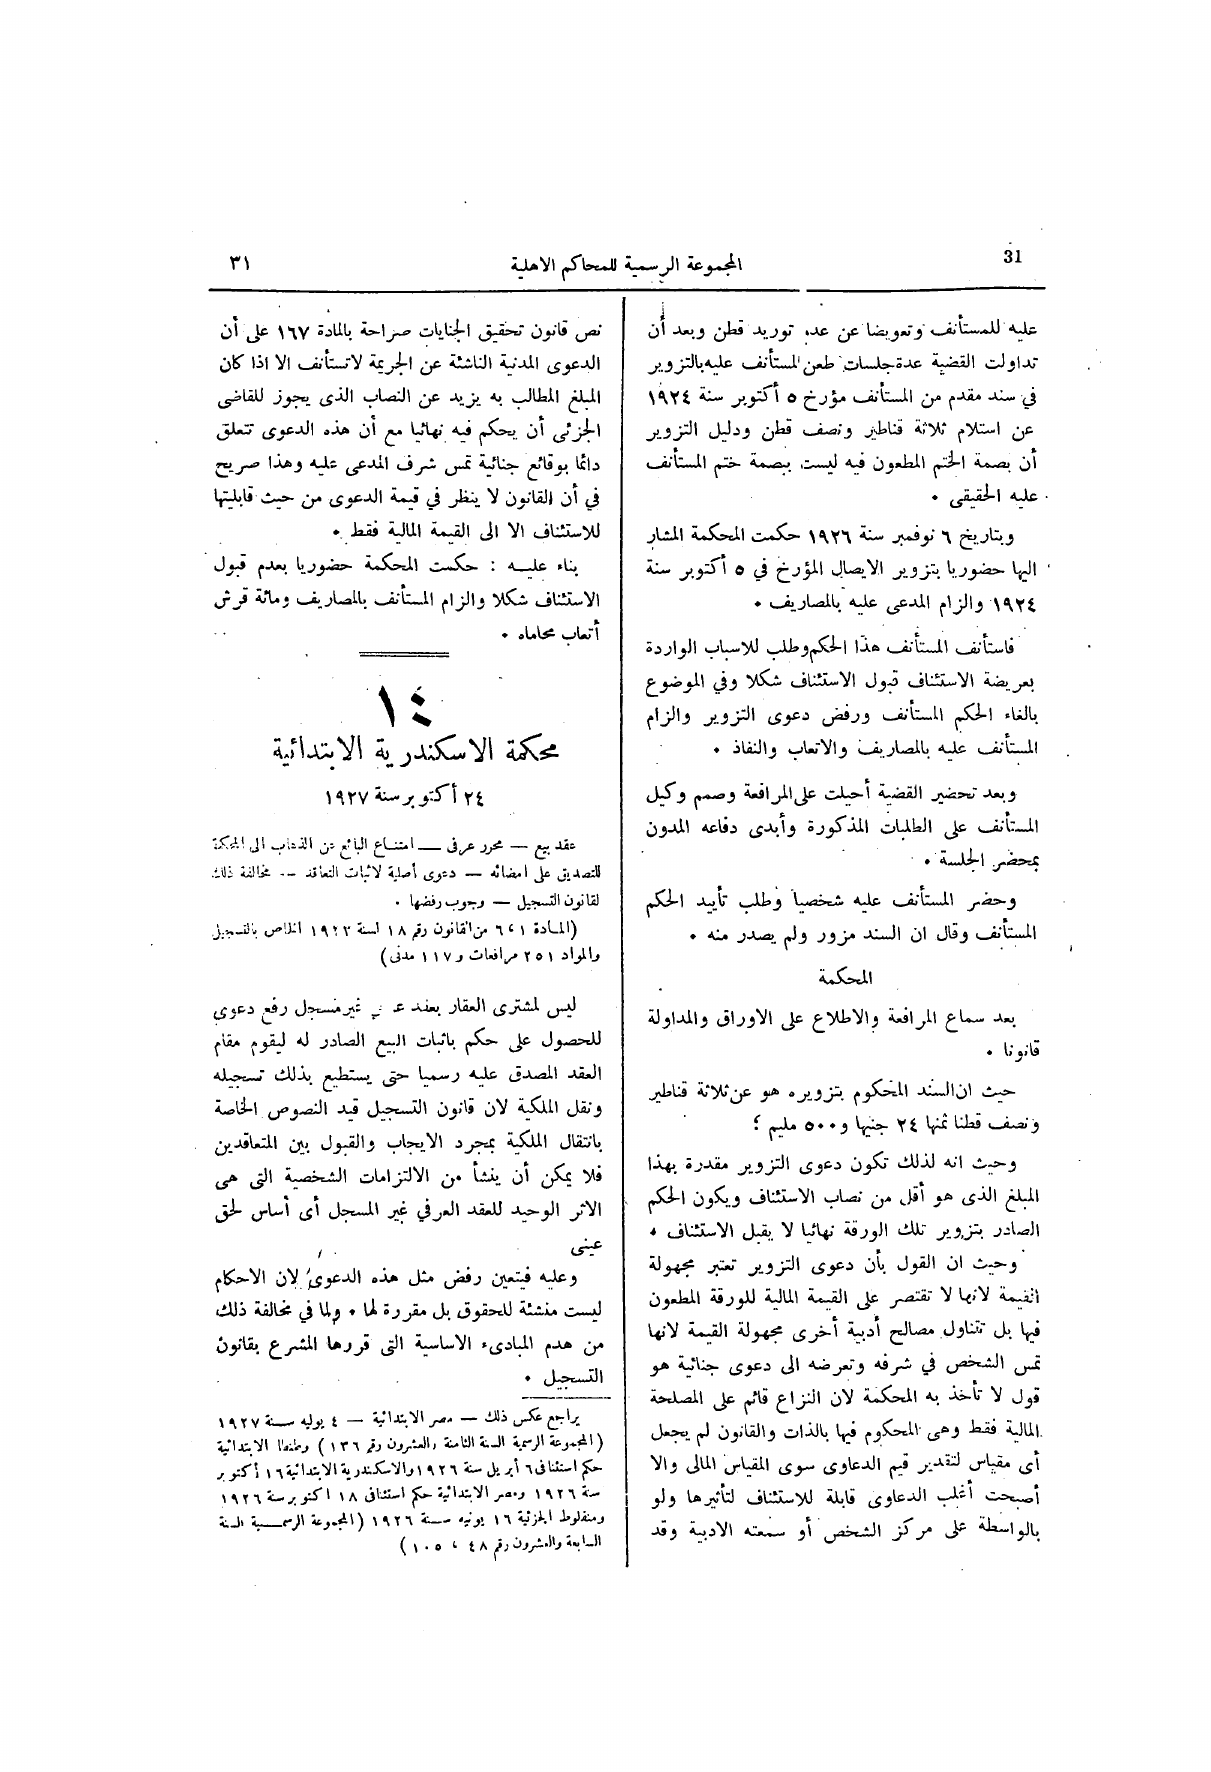 31
المجموعة الرسمية للمحاكم الاهلية
٣١
عليه للمستأنف وتعويضا عن عدم توريد قطن وبعد أن
تداولت القضية عدة جلسات طعن المستأنف عليه بالتزوير
في سند مقدم من المستأنف مؤرخ ٥ أكتوبر سنة ١٩٢٤
عن استلام ثلاثة قناطير ونصف قطن ودليل التزوير
أن بصمة الختم المطعون فيه ليست ببصمة ختم المستأنف
عليه الحقيقى .
وبتاريخ ٦ نوفمبر سنة ١٩٢٦ حكمت المحكمة المشار
اليها حضوريا بتزوير الايصال المؤرخ في ٥ أكتوبر سنة
١٩٢٤ والزام المدعى عليه بالمصاريف .
فاستأنف المستأنف هذا الحكم وطلب للاسباب الواردة
بعريضة الاستئناف قبول الاستئناف شكلا وفي الموضوع
بالغاء الحكم المستأنف ورفض دعوى التزوير والزام
المستأنف عليه بالمصاريف والاتعاب والنفاذ .
وبعد تحضير القضية أحيلت على المرافعة وصمم وكيل
المستأنف على الطلبات المذكورة وأبدى دفاعه المدون
بمحضر الجلسة .
وحضر المستأنف عليه شخصيا وطلب تأييد الحكم
المستأنف وقال ان السند مزور ولم يصدر منه .
المحكمة
بعد سماع المرافعة والاطلاع على الاوراق والمداولة
قانونا .
حيث ان السند المحكوم بتزويره هو عن ثلاثة قناطير
ونصف قطنا ثمنها ٢٤ جنيها و٥٠٠ مليم ؟
وحيث انه لذلك تكون دعوى التزوير مقدرة بهذا
المبلغ الذى هو أقل من نصاب الاستئناف ويكون الحكم
الصادر بتزوير تلك الورقة نهائيا لا يقبل الاستئناف .
وحيث ان القول بأن دعوى التزوير تعتبر مجهولة
القيمة لانها لا تقتصر على القيمة المالية للورقة المطعون
فيها بل تتناول مصالح أدبية أخرى مجهولة القيمة لانها
تمس الشخص في شرفه وتعرضه الى دعوى جنائية هو
قول لا تأخذ به المحكمة لان النزاع قائم على المصلحة
المالية فقط وهى المحكوم فيها بالذات والقانون لم يجعل
أى مقياس لتقدير قيم الدعاوى سوى المقياس المالى والا
أصبحت أغلب الدعاوى قابلة للاستئناف لتأثيرها ولو
بالواسطة على مركز الشخص أو سمعته الادبية وقد
نص قانون تحقيق الجنايات صراحة بالمادة ١٦٧ على أن
الدعوى المدنية الناشئة عن الجريمة لا تستأنف الا اذا كان
المبلغ المطالب به يزيد عن النصاب الذى يجوز للقاضى
الجزئى أن يحكم فيه نهائيا مع أن هذه الدعوى تتعلق
دائما بوقائع جنائية تمس شرف المدعى عليه وهذا صريح
في أن القانون لا ينظر في قيمة الدعوى من حيث قابليتها
للاستئناف الا الى القيمة المالية فقط .
بناء عليه : حكمت المحكمة حضوريا بعدم قبول
الاستئناف شكلا والزام المستأنف بالمصاريف ومائة قرش
أتعاب محاماه .
١٤
محكمة الاسكندرية الابتدائية
٢٤ أكتوبر سنة ١٩٢٧
عقد بيع — محرر عرفى — امتناع البائع عن الذهاب الى المحكمة
للتصديق على امضائه — دعوى أصلية لاثبات التعاقد — مخالفة ذلك
لقانون التسجيل — وجوب رفضها .
(المادة ١ و٦ من القانون رقم ١٨ لسنة ١٩٢٣ الخاص بالتسجيل
والمواد ٢٥١ مرافعات و ١١٧ مدنى)
ليس لمشترى العقار بعقد غير مسجل رفع دعوى
للحصول على حكم باثبات البيع الصادر له ليقوم مقام
العقد المصدق عليه رسميا حتى يستطيع بذلك تسجيله
ونقل الملكية لان قانون التسجيل قيد النصوص الخاصة
بانتقال الملكية بمجرد الايجاب والقبول بين المتعاقدين
فلا يمكن أن ينشأ من الالتزامات الشخصية التى هى
الاثر الوحيد للعقد العرفي غير المسجل أى أساس لحق
عينى
وعليه فيتعين رفض مثل هذه الدعوى لان الاحكام
ليست منشئة للحقوق بل مقررة لها . ولما في مخالفة ذلك
من هدم المبادىء الاساسية التى قررها المشرع بقانون
التسجيل .
يراجع عكس ذلك — مصر الابتدائية — ٤ يوليه سنة ١٩٢٧
(المجموعة الرسمية السنة الثامنة والعشرون رقم ١٣٦) وطنطا الابتدائية
حكم استئنافى ٦ أبريل سنة ١٩٢٦ والاسكندرية الابتدائية ١٦ أكتوبر
سنة ١٩٢٦ ومصر الابتدائية حكم استئنافى ١٨ اكتوبر سنة ١٩٢٦
ومنفلوط الجزئية ١٦ يونيه سنة ١٩٢٦ (المجموعة الرسمية السنة
السابعة والعشرون رقم ٤٨ ، ١٠٥)